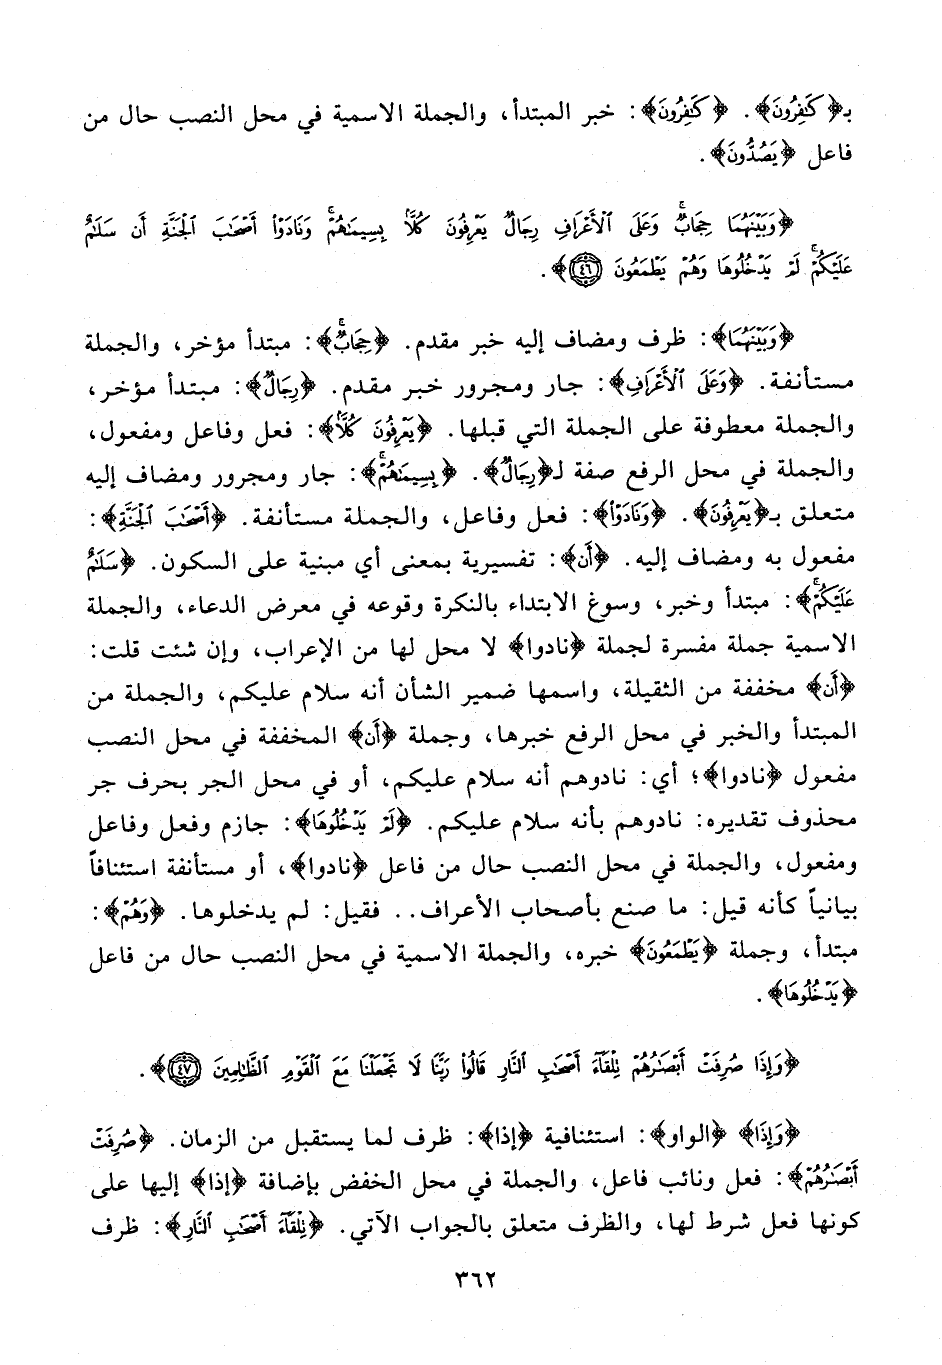 بـ﴿كَٰفِرُونَ﴾. ﴿كَٰفِرُونَ﴾: خبر المبتدأ، والجملة الاسمية في محل النصب حال من
فاعل ﴿يَصُدُّونَ﴾.
﴿وَبَيْنَهُمَا حِجَابٌ ۚ وَعَلَى ٱلْأَعْرَافِ رِجَالٌ يَعْرِفُونَ كُلًّۢا بِسِيمَىٰهُمْ ۚ وَنَادَوْا۟ أَصْحَٰبَ ٱلْجَنَّةِ أَن سَلَٰمٌ
عَلَيْكُمْ ۚ لَمْ يَدْخُلُوهَا وَهُمْ يَطْمَعُونَ ﴿٤٦﴾﴾.
﴿وَبَيْنَهُمَا﴾: ظرف ومضاف إليه خبر مقدم. ﴿حِجَابٌ ۚ﴾: مبتدأ مؤخر، والجملة
مستأنفة. ﴿وَعَلَى ٱلْأَعْرَافِ﴾: جار ومجرور خبر مقدم. ﴿رِجَالٌ﴾: مبتدأ مؤخر،
والجملة معطوفة على الجملة التي قبلها. ﴿يَعْرِفُونَ كُلًّۢا﴾: فعل وفاعل ومفعول،
والجملة في محل الرفع صفة لـ﴿رِجَالٌ﴾. ﴿بِسِيمَىٰهُمْ ۚ﴾: جار ومجرور ومضاف إليه
متعلق بـ﴿يَعْرِفُونَ﴾. ﴿وَنَادَوْا۟﴾: فعل وفاعل، والجملة مستأنفة. ﴿أَصْحَٰبَ ٱلْجَنَّةِ﴾:
مفعول به ومضاف إليه. ﴿أَن﴾: تفسيرية بمعنى أي مبنية على السكون. ﴿سَلَٰمٌ
عَلَيْكُمْ ۚ﴾: مبتدأ وخبر، وسوغ الابتداء بالنكرة وقوعه في معرض الدعاء، والجملة
الاسمية جملة مفسرة لجملة ﴿نادوا﴾ لا محل لها من الإعراب، وإن شئت قلت:
﴿أَن﴾ مخففة من الثقيلة، واسمها ضمير الشأن أنه سلام عليكم، والجملة من
المبتدأ والخبر في محل الرفع خبرها، وجملة ﴿أَن﴾ المخففة في محل النصب
مفعول ﴿نادوا﴾؛ أي: نادوهم أنه سلام عليكم، أو في محل الجر بحرف جر
محذوف تقديره: نادوهم بأنه سلام عليكم. ﴿لَمْ يَدْخُلُوهَا﴾: جازم وفعل وفاعل
ومفعول، والجملة في محل النصب حال من فاعل ﴿نادوا﴾، أو مستأنفة استئنافاً
بيانياً كأنه قيل: ما صنع بأصحاب الأعراف.. فقيل: لم يدخلوها. ﴿وَهُمْ﴾:
مبتدأ، وجملة ﴿يَطْمَعُونَ﴾ خبره، والجملة الاسمية في محل النصب حال من فاعل
﴿يَدْخُلُوهَا﴾.
﴿وَإِذَا صُرِفَتْ أَبْصَٰرُهُمْ تِلْقَآءَ أَصْحَٰبِ ٱلنَّارِ قَالُوا۟ رَبَّنَا لَا تَجْعَلْنَا مَعَ ٱلْقَوْمِ ٱلظَّٰلِمِينَ ﴿٤٧﴾﴾.
﴿وَإِذَا﴾ ﴿الواو﴾: استئنافية ﴿إذا﴾: ظرف لما يستقبل من الزمان. ﴿صُرِفَتْ
أَبْصَٰرُهُمْ﴾: فعل ونائب فاعل، والجملة في محل الخفض بإضافة ﴿إذا﴾ إليها على
كونها فعل شرط لها، والظرف متعلق بالجواب الآتي. ﴿تِلْقَآءَ أَصْحَٰبِ ٱلنَّارِ﴾: ظرف
٣٦٢